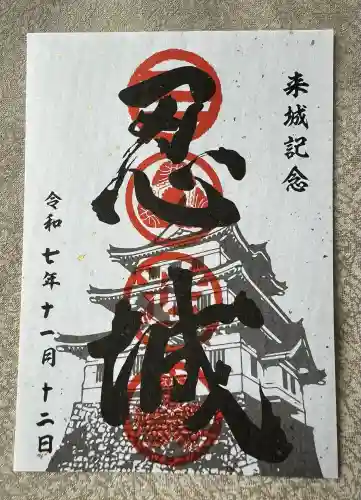 来城記念
忍城
令和七年十一月十二日